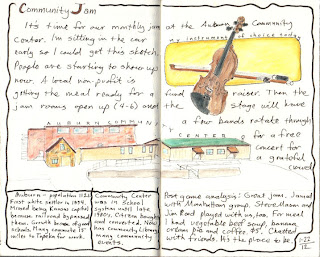 Community Jam
It's time for our monthly jam at the Auburn Community
Center. I'm sitting in the car my instrument of choice today
early so I could get this sketch.
People are starting to show up
now. A local non-profit is
getting the meal ready for a fund raiser. Then the
jam rooms open up (4-6) and the stage will have
a few bands rotate through
AUBURN COMMUNITY CENTER
for a free
concert for
a grateful
crowd.
Auburn - population 1122
First white settler in 1854.
Missed being Kansas capital
because railroad bypassed
them. Growth because of good
schools. Many commute 15
miles to Topeka for work.
Community Center
was in School
system until late
1980's. Citizens bought
and converted. Now
has Community Library
& many community
events.
Post game analysis: Great jam. Jammed
with Manhattan group. Steve Mason and
Jim Rood played with us, too. For meal
I had vegetable beef soup, banana
cream pie and coffee. $5. Chatted
with friends. It's the place to be.
1-22
12